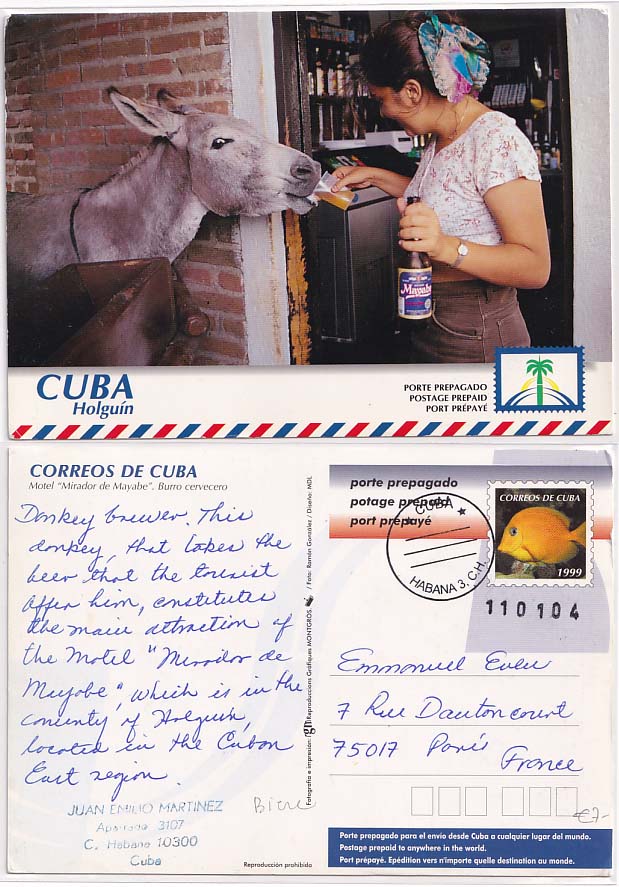 Mayabe
CUBA
Holguín
PORTE PREPAGADO
POSTAGE PREPAID
PORT PRÉPAYÉ
CORREOS DE CUBA
Motel "Mirador de Mayabe". Burro cervecero
Donkey brewer. This
donkey, that takes the
beer that the tourist
offer him, constitutes
the main attraction of
the Motel "Mirador de
Mayabe", which is in the
county of Holguín,
located in the Cuban
East region.
JUAN EMILIO MARTINEZ
Apartado 3107
C. Habana 10300
Cuba
Biere
Reproducción prohibida
Fotografía e impresión: rgm Reproduccions Gràfiques MONTGRÓS / Foto: Ramón González / Diseño: MDL
porte prepagado
potage prepaid
port prépayé
CUBA
HABANA 3, C.H.
CORREOS DE CUBA
1999
110104
Emmanuel
7 Rue Dautancourt
75017 Paris
France
€7-
Porte prepagado para el envío desde Cuba a cualquier lugar del mundo.
Postage prepaid to anywhere in the world.
Port prépayé. Epédition vers n'importe quelle destination au monde.